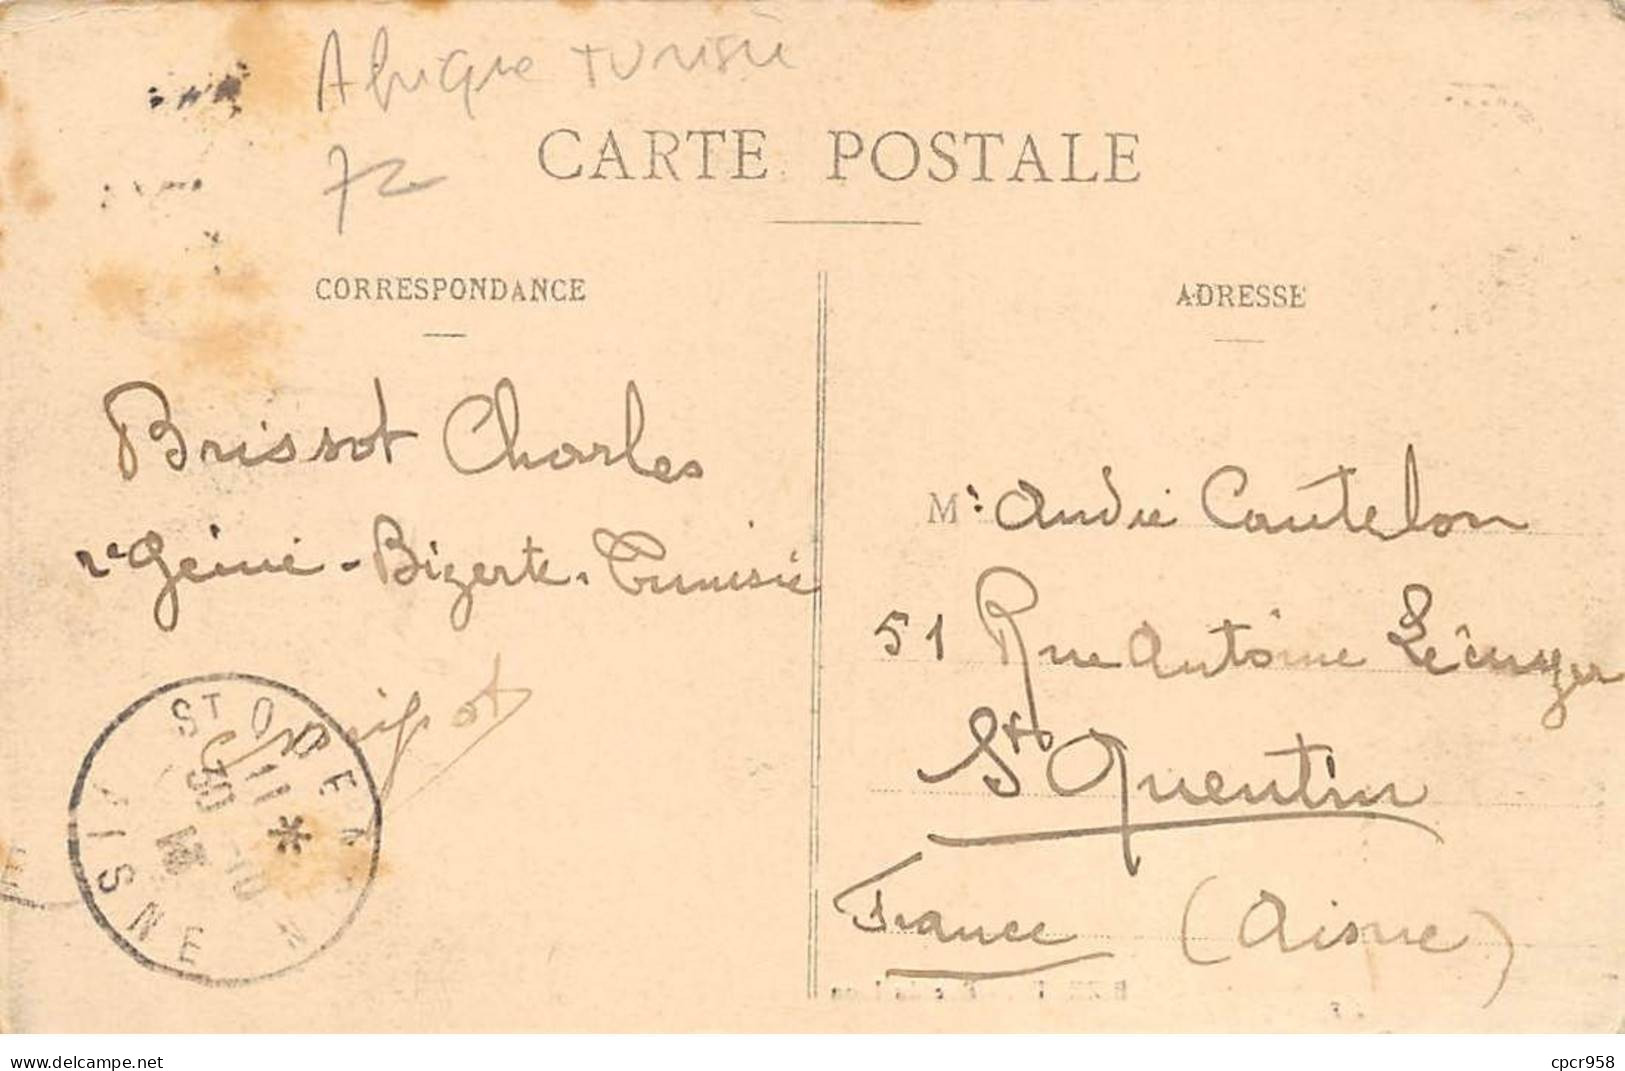 Afrique tunisie
72
CARTE POSTALE
CORRESPONDANCE
ADRESSE
Brissot Charles
2e Génie - Bizerte. Tunisie
Mr André Cautelon
51 Rue Antoine Lécuyer
St Quentin
France (Aisne)
ST QUENTIN
11 *
30 -10
AISNE
www.delcampe.net
cpcr958